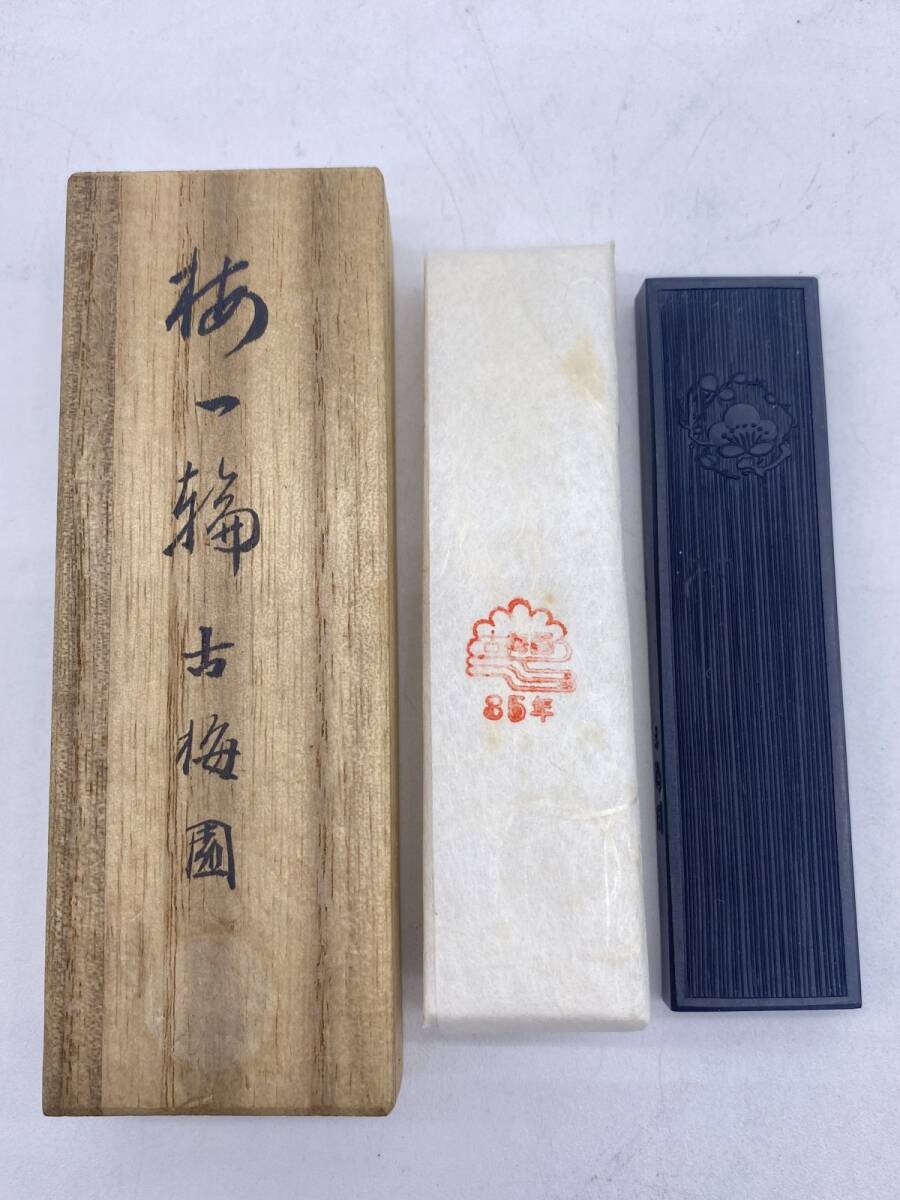 梅一輪
古梅園
85年